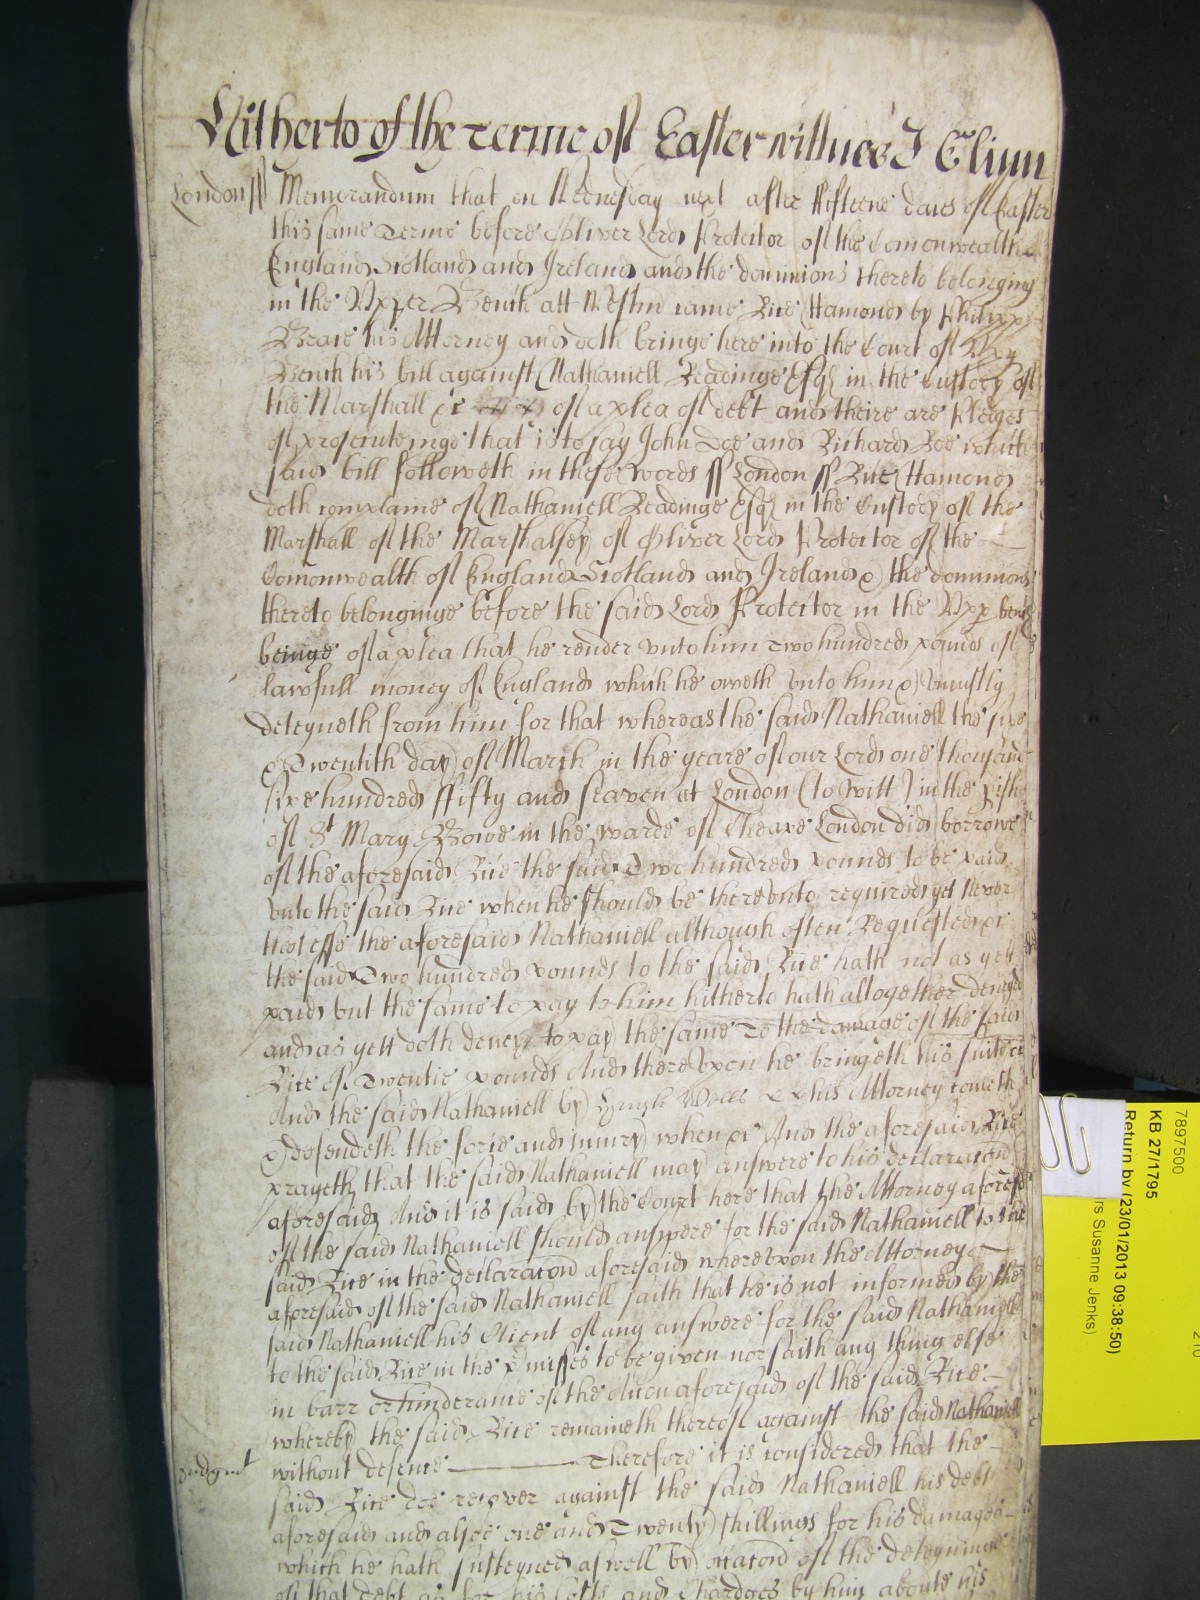 Hitherto of the terme of Easter wittnes J Glynn
London ss Memorandum that on Wednesday next after ffifteene daies of Easter
this same Terme before Oliver Lord Protector of the Comonwealth of
England Scotland and Ireland and the dominions thereto belonging
in the Vpper Bench att Westm came Rice Hamond by Phillipp
his Attorney and doth bringe here into the Court of Vpp
Bench his bill against Nathaniell Readinge Esqr in the Custody of
the Marshall &c of a plea of debt and theire are Pledges
of prosecuteinge that is to say John Doe and Richard Roe which
said bill followeth in these words ss London ss Rice Hamond
doth complaine of Nathaniell Readinge Esqr in the Custody of the
Marshall of the Marshalsey of Oliver Lord Protector of the
Comonwealth of England Scotland and Ireland & the dominions
thereto belonginge before the said Lord Protector in the Vpp bench
beinge of a plea that he render vnto him Two hundred pounds of
lawfull money of England which he oweth vnto him & vniustly
deteyneth from him for that whereas the said Nathaniell the six
& Twentith day of March in the yeare of our Lord one thousand
sixe hundred ffifty and seaven at London (to witt) in the pish
of St Mary Bowe in the warde of Cheape London did borrowe
of the aforesaid Rice the said Two hundred pounds to be paid
vnto the said Rice when he should be therevnto required yet never
thelesse the aforesaid Nathaniell although often Requested &c
the said Two hundred pounds to the said Rice hath not as yett
paid but the same to pay to him hitherto hath altogether denyed
and as yett doth deney to pay the same To the damage of the said
Rice of Twentie pounds And therevpon he bringeth his suite &c
And the said Nathaniell by his Attorney cometh
& defendeth the force and iniury when &c And the aforesaid Rice
prayeth that the said Nathaniell may answere to his declaracon
aforesaid And it is said by the Court here that the Attorney aforesd
of the said Nathaniell should answere for the said Nathaniell to the
said Rice in the declaracon aforesaid wherevpon the Attorney
aforesaid of the said Nathaniell saith that he is not informed by the
said Nathaniell his Client of any answere for the said Nathaniell
to the said Rice in the pmisses to be given nor saith any thing else
in barr or hinderance of the Accon aforesaid of the said Rice
whereby the said Rice remaineth thereof against the said Nathaniell
Judgmt without defence Therefore it is considered that the
said Rice doe recover against the said Nathaniell his debt
aforesaid and alsoe one and Twenty shillings for his damages
which he hath susteyned aswell by occacon of the deteyninge
of that debt as for his Costs and Chardges by him aboute his
7897500
KB 27/1795
Return by (23/01/2013 09:38:50)
rs Susanne Jenks)